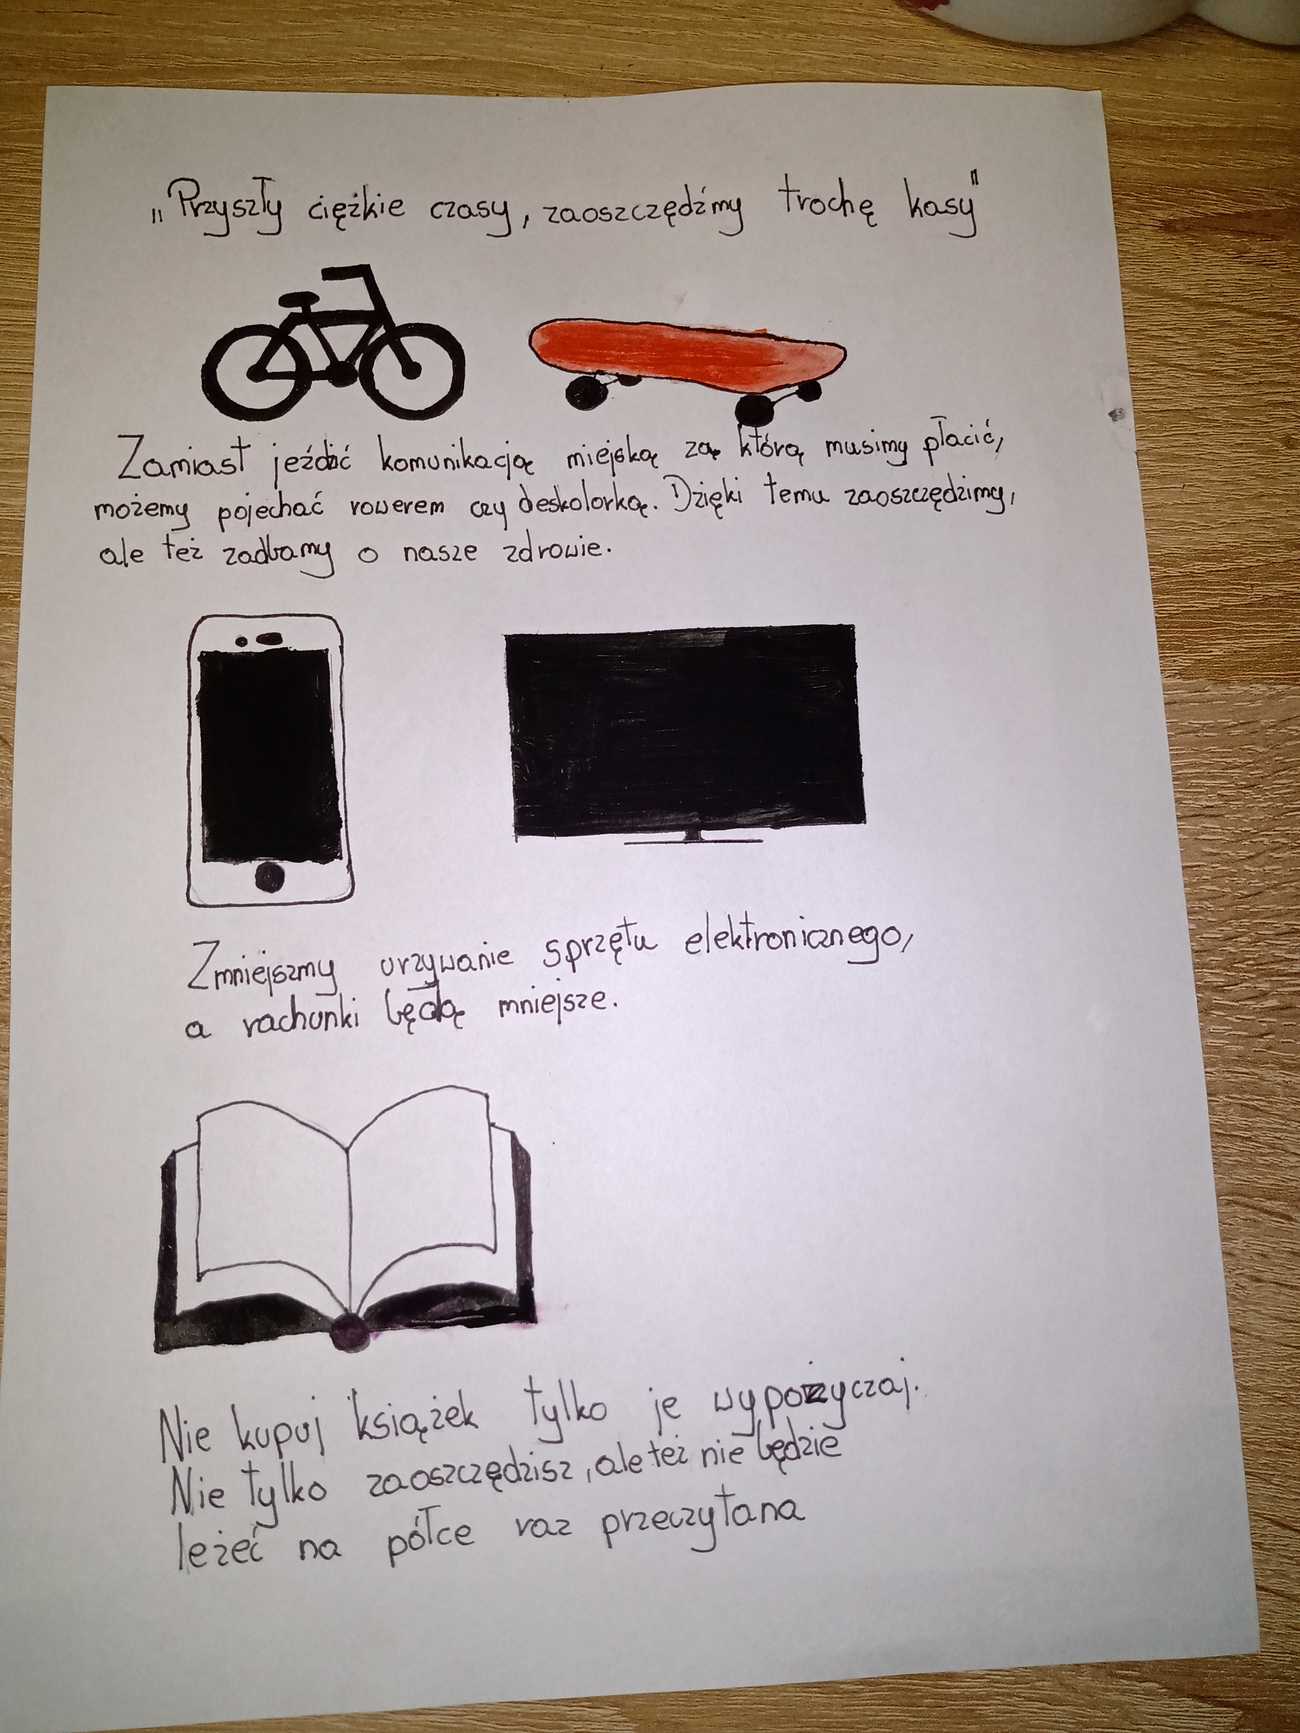 „Przyszły ciężkie czasy, zaoszczędźmy trochę kasy"
Zamiast jeździć komunikacją miejską za którą musimy płacić,
możemy pojechać rowerem czy deskolorką. Dzięki temu zaoszczędzimy,
ale też zadbamy o nasze zdrowie.
Zmniejszmy urzywanie sprzętu elektronicznego,
a rachunki będą mniejsze.
Nie kupuj książek tylko je wypożyczaj.
Nie tylko zaoszczędzisz, ale też nie będzie
leżeć na półce raz przeczytana